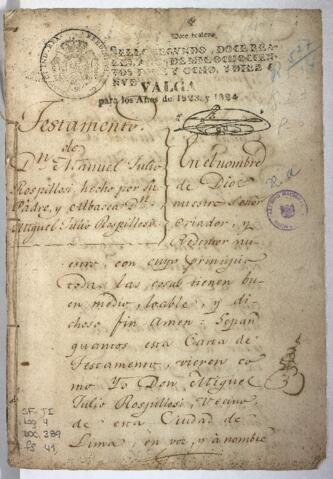 Doce reales
SELLO SEGUNDO, DOCE REA-
LES, AÑOS DE MIL OCHOCIEN-
TOS DIEZ Y OCHO, Y DIEZ Y
NUEVE
VALGA
para los Años de 1823 y 1824
Testamento
de
Dn. Manuel Julio
Rospillosi, hecho por su
Padre, y Albacea Dn.
Miguel Julio Rospillosi
En el nombre
de Dios
nuestro Señor
Criador, y
Redentor nu
estro, con cuyo principio
todas las cosas tienen bu
en medio, loable, y di
choso fin Amen: Sepan
quantos esta Carta de
Testamento, vieren co
mo Yo Don Miguel
Julio Rospillosi, Vecino
de esta Ciudad de
Lima, en voz, y à nombre
SF TI
Leg 4
DOC 289
fs 41